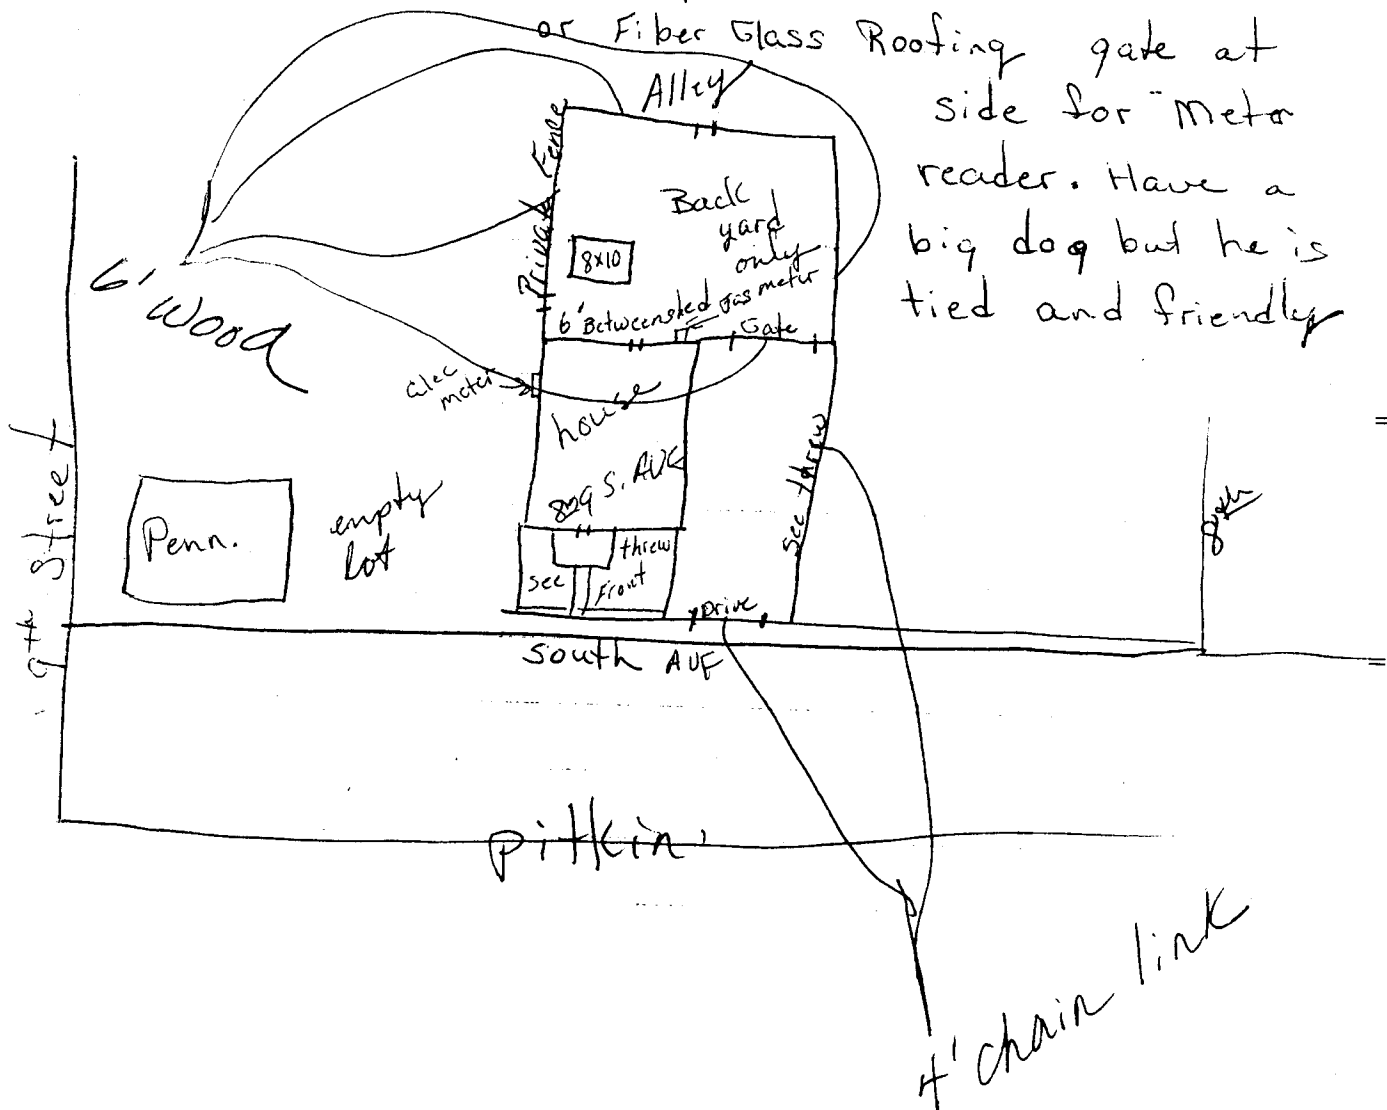 or Fiber Glass Roofing gate at
side for "Meter
reader. Have a
big dog but he is
tied and friendly
Alley
Private Fence
Back
yard
only
8x10
6' Between shed
gas meter
Gate
6' Wood
elec
meter
house
829 S. AVE
see threw
Front
see threw
Drive
empty
lot
Penn.
9th Street
South AVE
pitkin
4' chain link